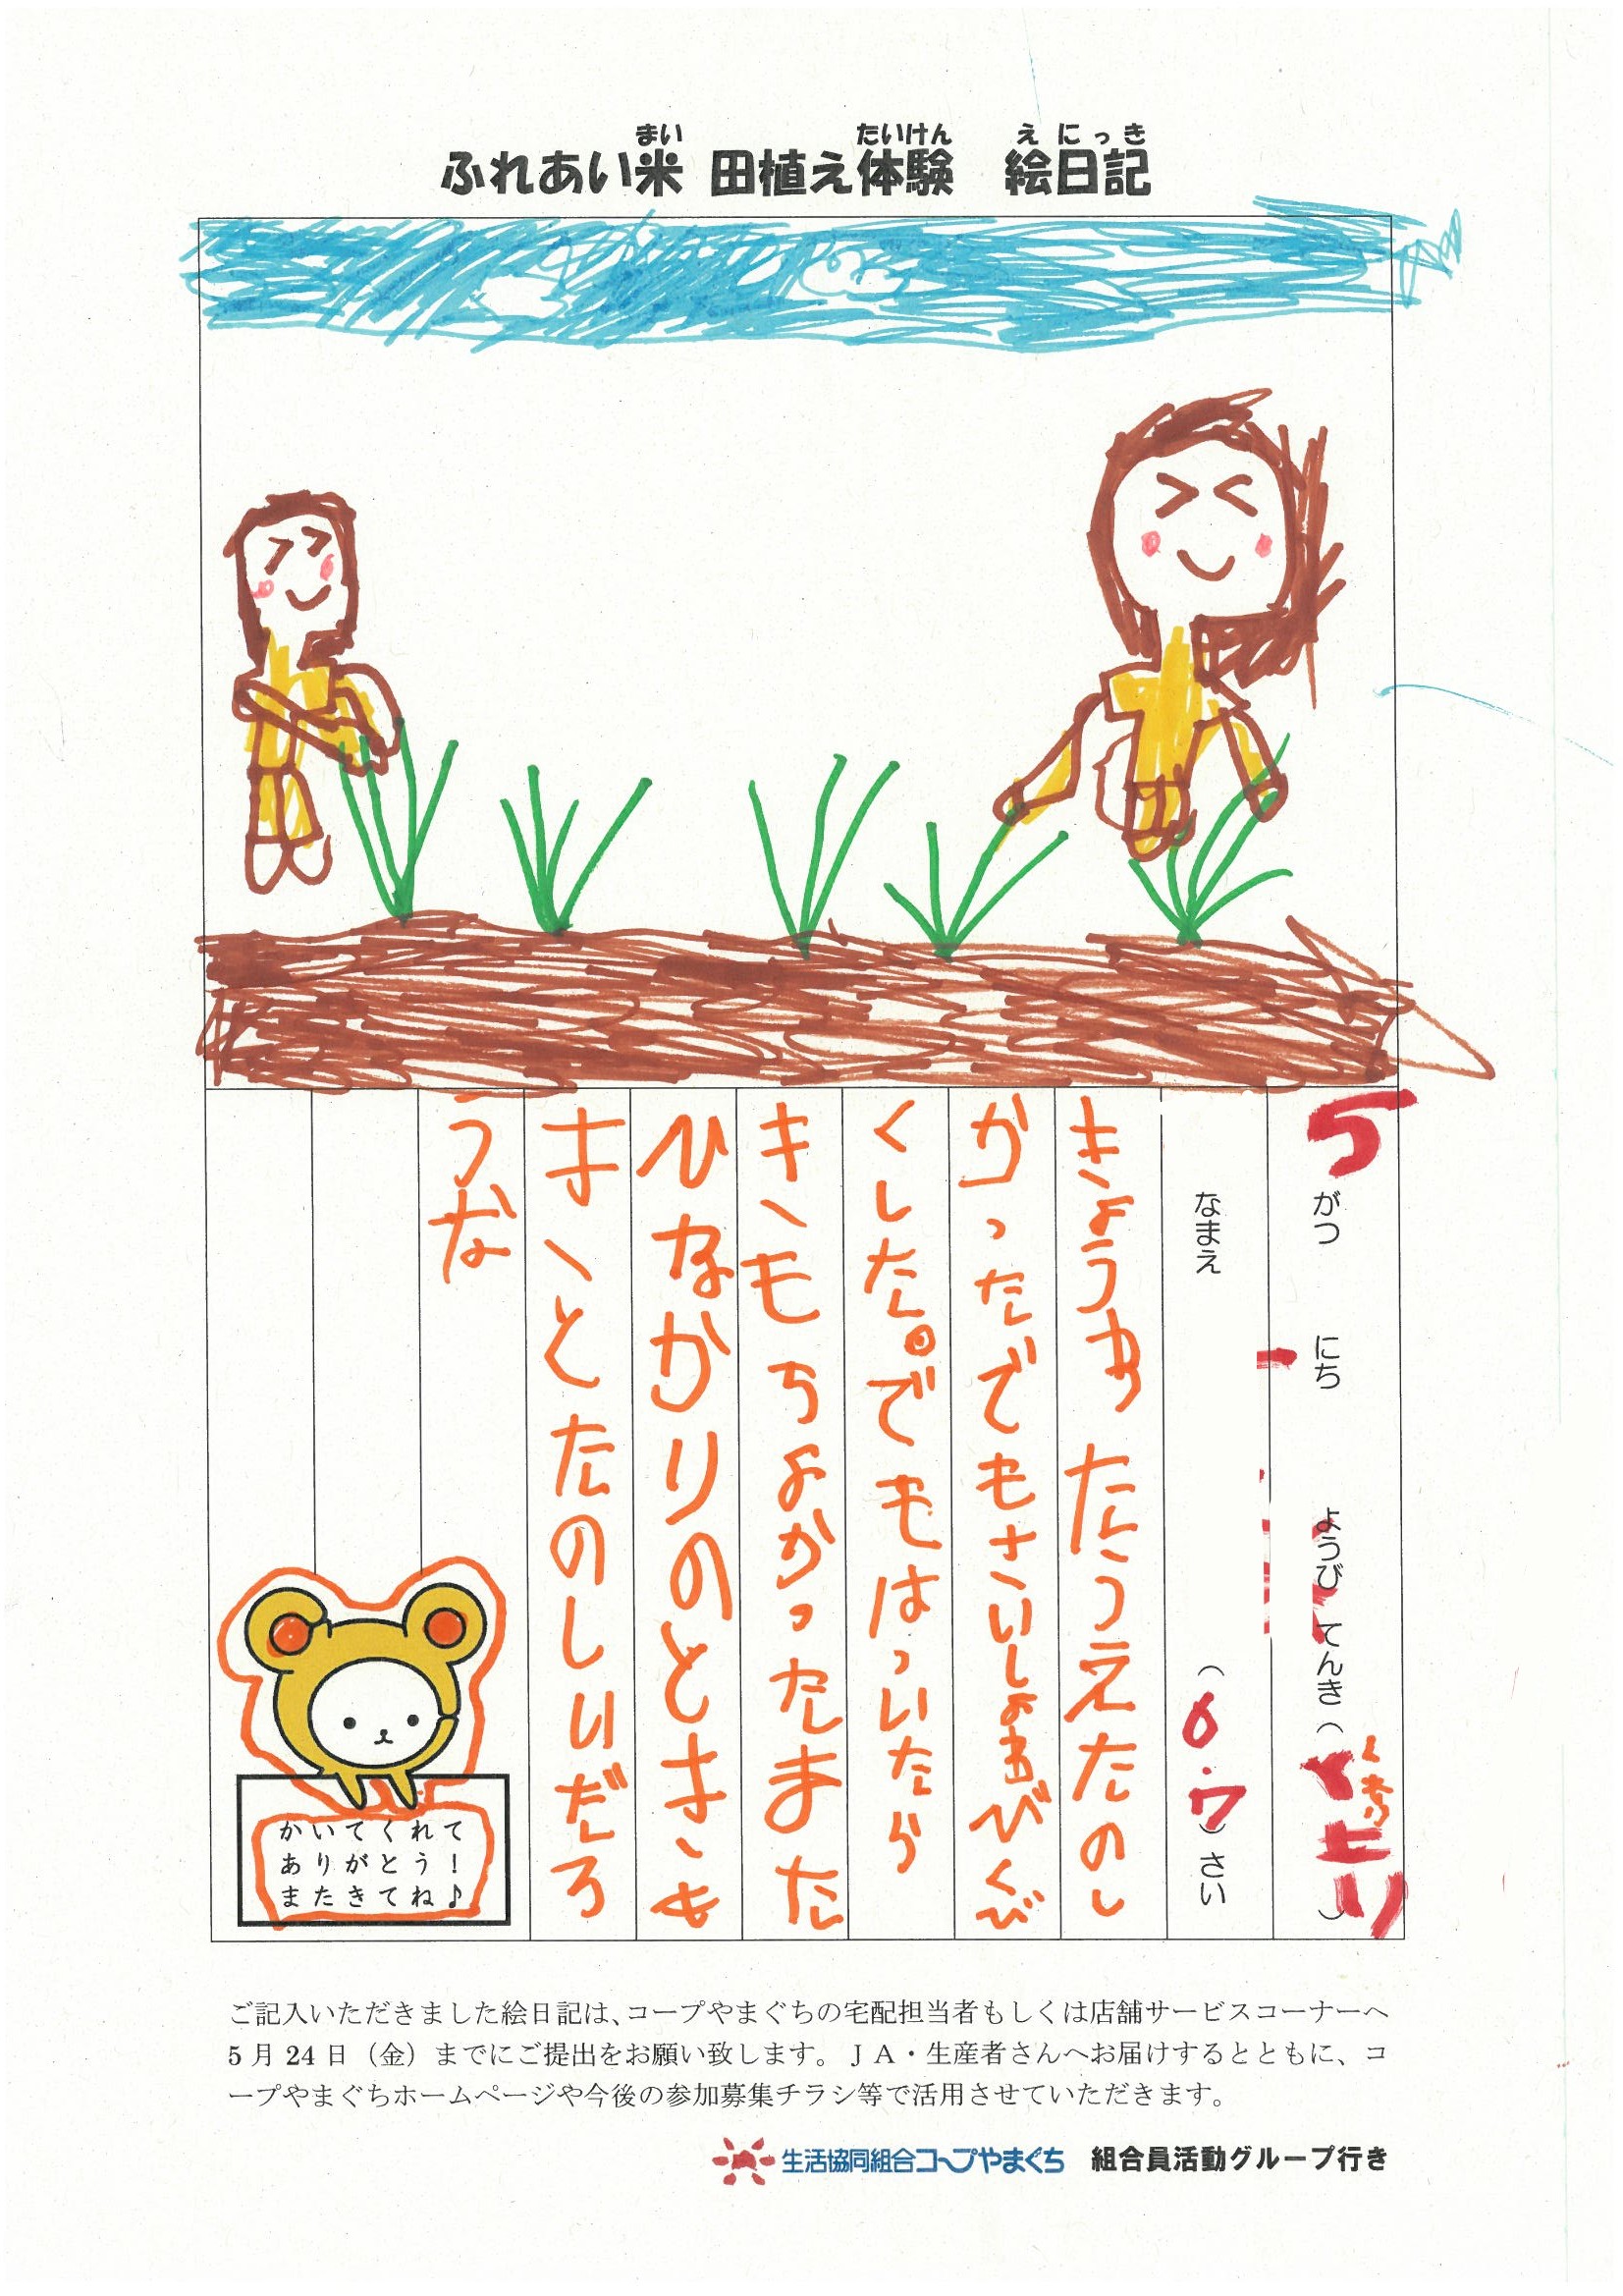 ふれあい米 田植え体験 絵日記
まい たいけん えにっき
5 がつ にち ようび てんき（ くもり ）
なまえ （6.7）さい
きょうわ たうえたのし
かったでもさいしょわびくび
くした。でもはっいたら
きもちよかったまた
ひなかりのとき も
きっとたのしいだろ
うな
かいてくれて
ありがとう！
またきてね♪
ご記入いただきました絵日記は、コープやまぐちの宅配担当者もしくは店舗サービスコーナーへ
5月24日（金）までにご提出をお願い致します。ＪＡ・生産者さんへお届けするとともに、コ
ープやまぐちホームページや今後の参加募集チラシ等で活用させていただきます。
生活協同組合コープやまぐち 組合員活動グループ行き